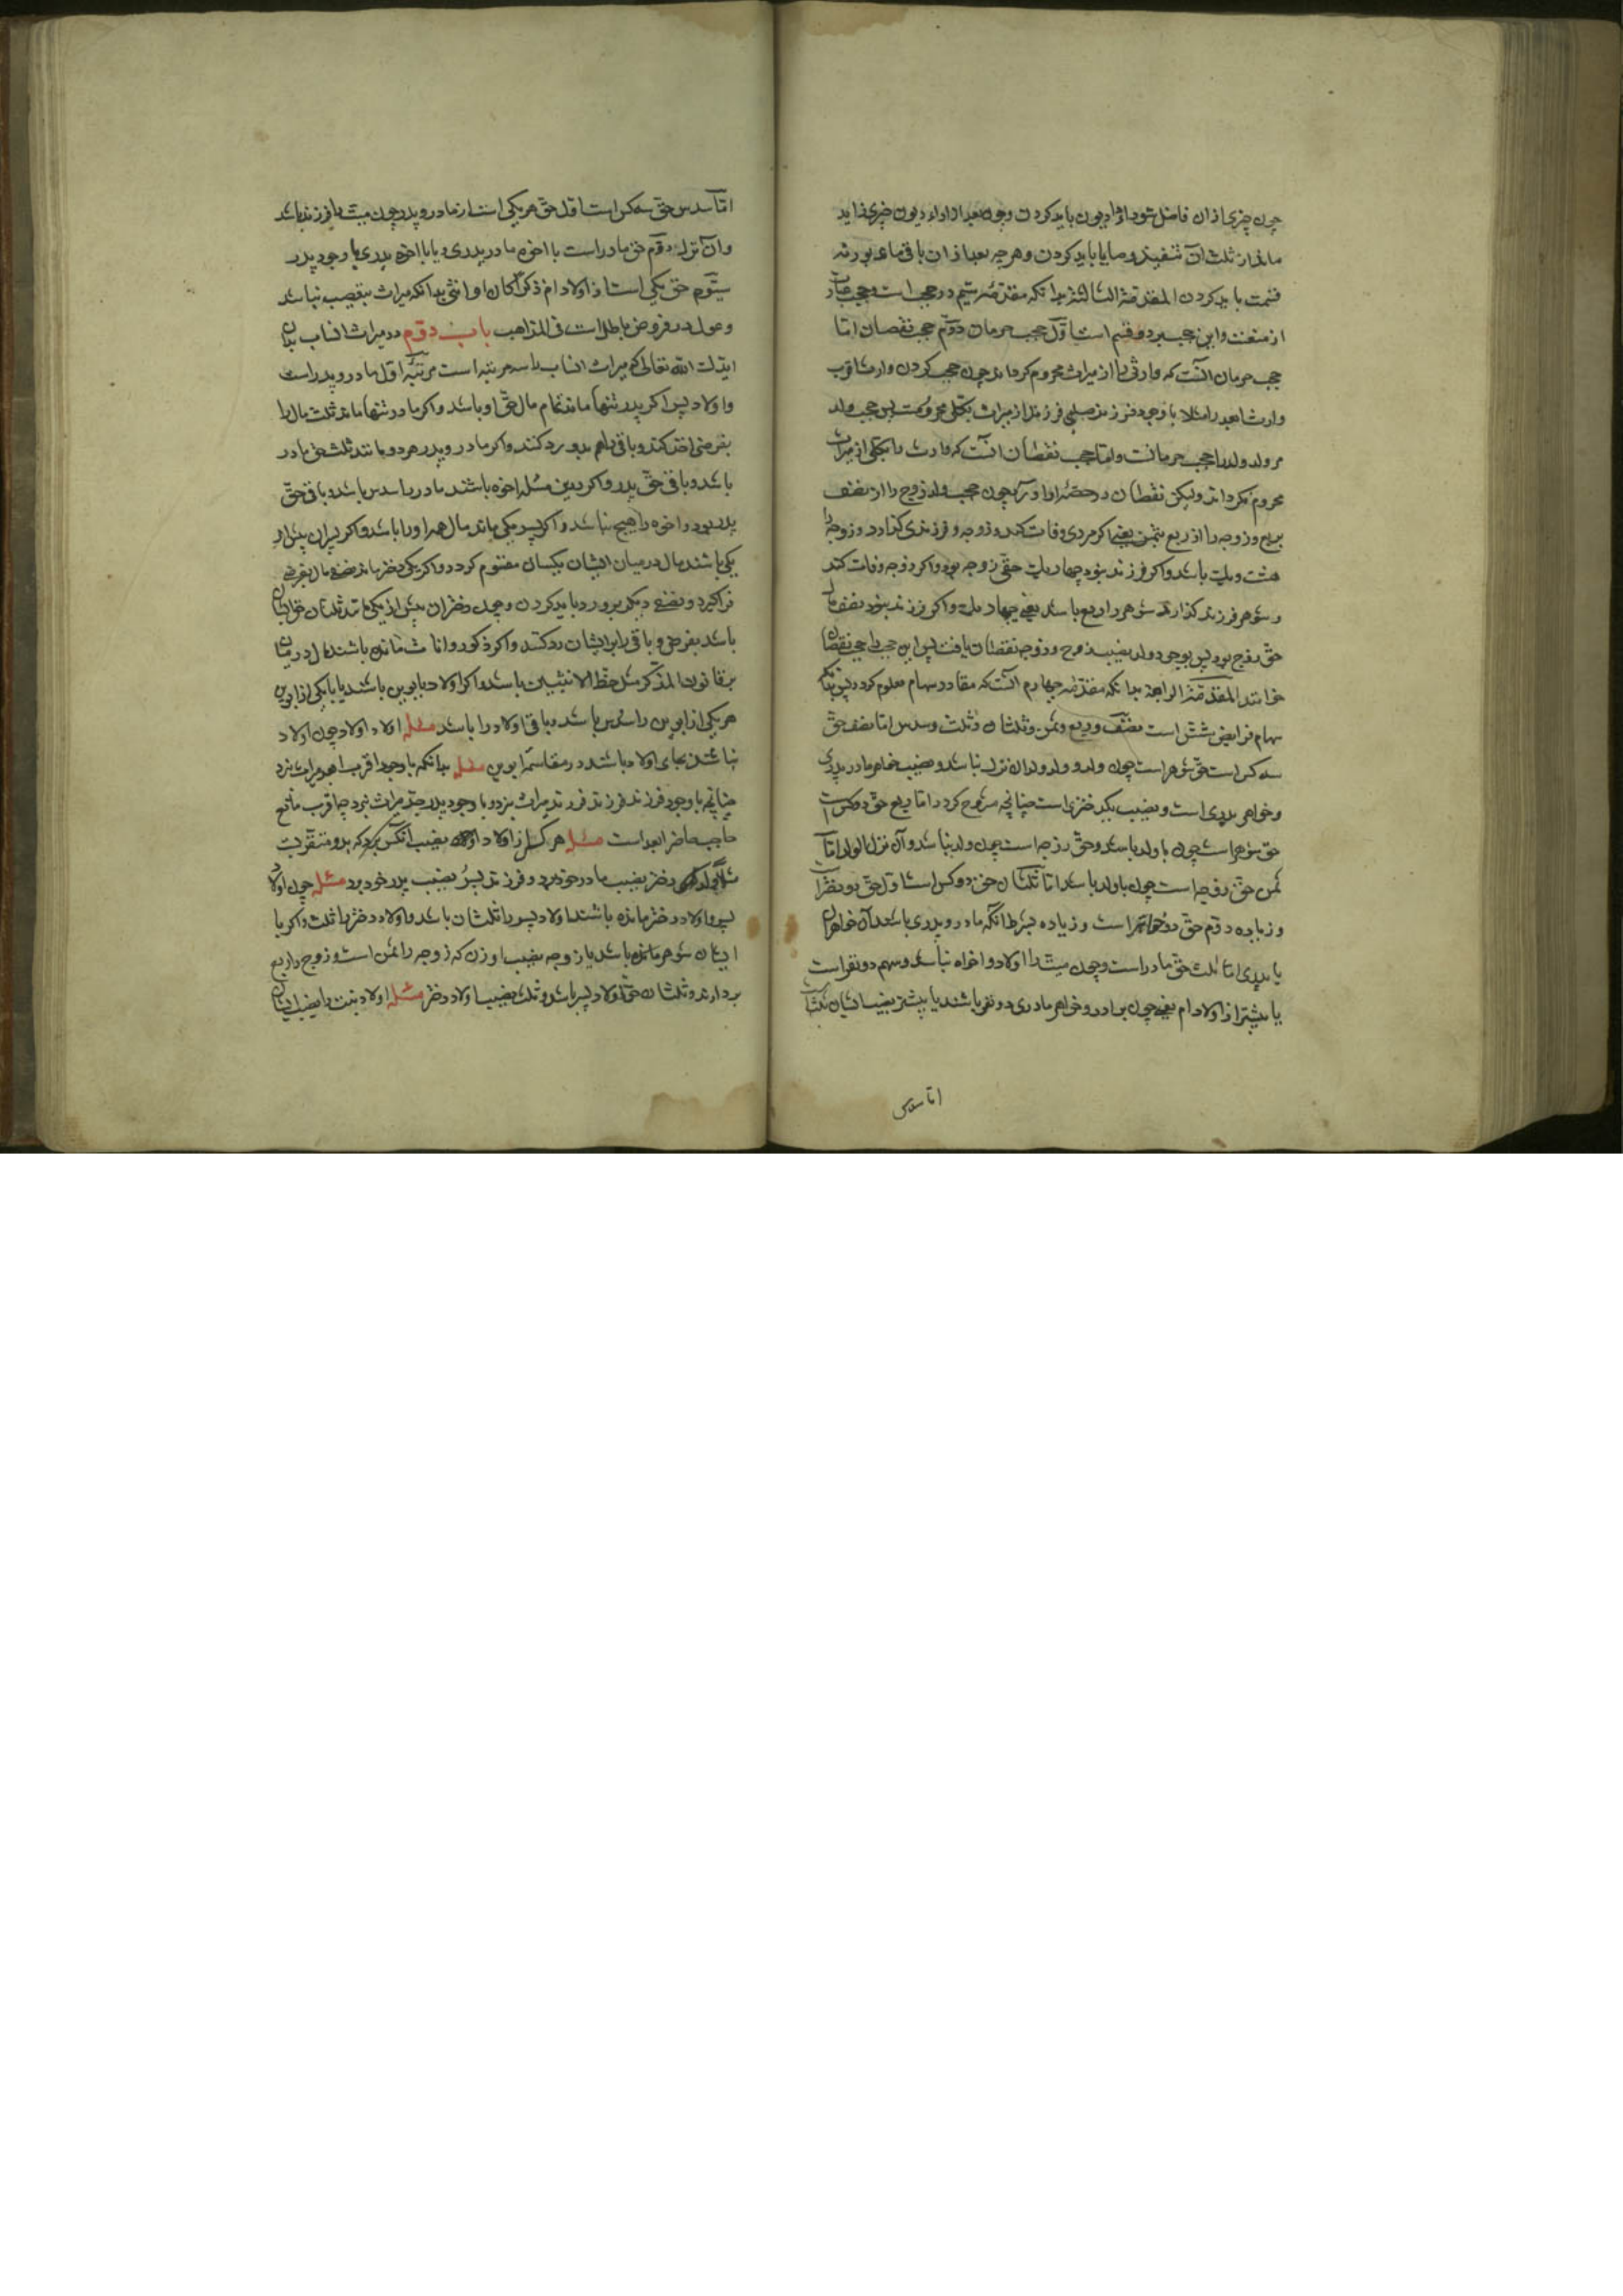 چون چیزی ازان فاضل شود اداء دیون باید کردن وچون بعد از اداء دیون چیزی زاید
ماند از ثلث آن تنفیذ وصایا باید کردن وهرچه بعد ازان باقی ماند بورثه
قسمت باید کردن المقدمة الثالثة بدانکه مقدمه سیم در حجب است وحجب عبارت
از منعت واین حجب بر دو قسم است اول حجب حرمان دوم حجب نقصان اما
حجب حرمان آنست که وارثی را از میراث محروم کرداند چون حجب کردن وارث اقرب
وارث ابعد را مثلا با وجود فرزند صلبی فرزند از میراث بکلی محروم است پس حجب ولد
مر ولد ولد را حجب حرمانست واما حجب نقصان آنست که وارث را بکلی از میراث
محروم نکرداند ولیکن نقصان در حصه او آورد چون حجب ولد زوج را از نصف
بربع وزوجه را از ربع بثمن یعنی اکر مردی وفات کند وزوجه وفرزندی کذارد وزوجه را
هشت ویک باشد واکر فرزند نبود چهار یک حق زوجه بود واکر زوجه وفات کند
وشوهر وفرزند کذارد شوهر را ربع باشد یعنی چهار یک واکر فرزند نبود نصف مال
حق زوج بود پس بوجود ولد نصیب زوج وزوجه نقصان یافت پس این حجب را حجب نقصان
خوانند المقدمة الرابعة بدانکه مقدمه چهارم آنست که مقادیر سهام معلوم کردد پس بدانکه
سهام فرایض شش است نصف وربع وثمن وثلثان وثلث وسدس اما نصف حق
سه کس است حق شوهر است چون ولد و ولد ولد وان نزل نباشد ونصیب خواهر مادر پدری
وخواهر پدری است ونصیب یک دختری است چنانچه مشروح کردد اما ربع حق دو کس است
حق شوهر است چون با ولد باشد وحق زوجه است چون ولد نباشد وآن نزل الولد اما
ثمن حق زوجه است چون با ولد باشد اما ثلثان حق دو کس است اول حق دو دختر است
وزیاده دوم حق دو خواهر است وزیاده بشرط آنکه مادر وپدری باشد آن خواهران
یا پدری اما ثلث حق مادر است وچون میت را اولاد واخوه نباشد وسهم دو نفر است
یا بیشتر از اولاد ام یعنی چون برادر وخواهر مادری دو نفر باشند یا بیشتر نصیب ایشان ثلث است
اما سدس
اما سدس حق سه کس است اول حق هر یکی است از مادر وپدر چون میت را فرزند باشد
وان نزل دوم حق مادر است با اخوه مادر پدری ویا با اخوه پدری با وجود پدر
سیوم حق یکی است از اولاد ام ذکرا کان او انثی بدانکه میراث بتعصیب نباشد
وعول در فروض باطل است فی المذاهب باب دوم در میراث انساب بدان
ایدک الله تعالی که میراث انساب را سه مرتبه است مرتبه اول مادر وپدر است
واولاد پس اکر پدر تنها ماند تمام مال حق او باشد واکر مادر تنها ماند ثلث مال را
بفرض اخذ کند وباقی را هم بدو رد کنند واکر مادر وپدر هر دو مانند ثلث حق مادر
باشد وباقی حق پدر واکر درین مسئله اخوه باشند مادر را سدس باشد وباقی حق
پدر بود واخوه را هیچ نباشد واکر پسر یکی ماند مال همه او را باشد واکر پسران بیش از
یکی باشند مال در میان ایشان یکسان مقسوم کردد واکر یک دختر ماند نصف مال بفرض
فراکیرد ونصف دیکر برو رد باید کردن وچون دختران بیش از یکی مانند ثلثان حق ایشان
باشد بفرض وباقی را بر ایشان رد کنند واکر ذکور واناث مانده باشند مال در میان
بر قانون للذکر مثل حظ الانثیین باشد واکر اولاد با ابوین باشند یا با یکی از ابوین
هر یکی از ابوین را سدس باشد وباقی اولاد را باشد مسئله اولاد اولاد چون اولاد
نباشند بجای اولاد باشند در مقاسمه ابوین مسئله بدانکه با وجود اقرب ابعد میراث نبرد
چنانچه با وجود فرزند فرزند فرزند میراث نبرد وبا وجود پدر جد میراث نبرد چه اقرب مانع
حاجب ابعد است مسئله هر کس از اولاد اولاد نصیب آنکس برد که بدو متقرب است
دختر نصیب مادر خود برد وفرزند پسر نصیب پدر خود برد مسئله چون اولاد
پسر واولاد دختر مانده باشند اولاد پسر را ثلثان باشد واولاد دختر را ثلث واکر با
ایشان شوهر مانده باشد یا زوجه نصیب او زن که زوجه را ثمن است وزوج را ربع
بردارند وثلثان حق اولاد پسر باشد وثلث نصیب اولاد دختر مسئله اولاد بنت را نصیب ایشان